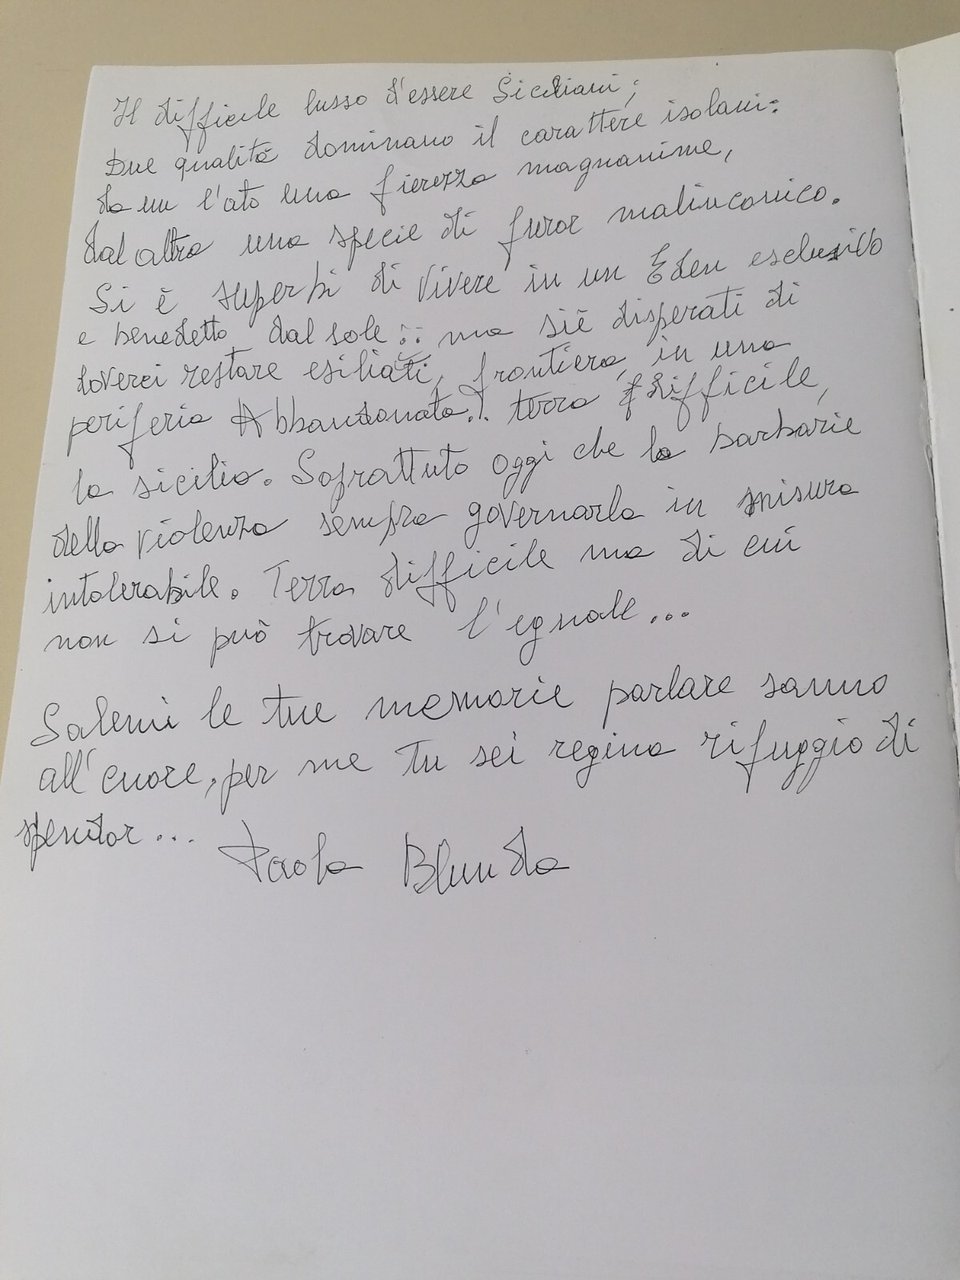 Il difficile lusso d'essere Siciliani;
Due qualità dominano il carattere isolani:
da un l'ato una fierezza magnanime,
dal altra una specie di furor malinconico.
Si è superbi di vivere in un Eden esclusivo
e benedetto dal sole :: ma siè disperati di
doverci restare esiliati, frontiera, in una
periferia Abbandonata... terra difficile,
la sicilia. Soprattuto oggi che la barbarie
della violenza sempra governarla in misura
intolerabile. Terra difficile ma di cui
non si può trovare l'eguale...
Salemi le tue memorie parlare sanno
all'cuore, per me tu sei regina rifuggio di
...
Paola Blunda